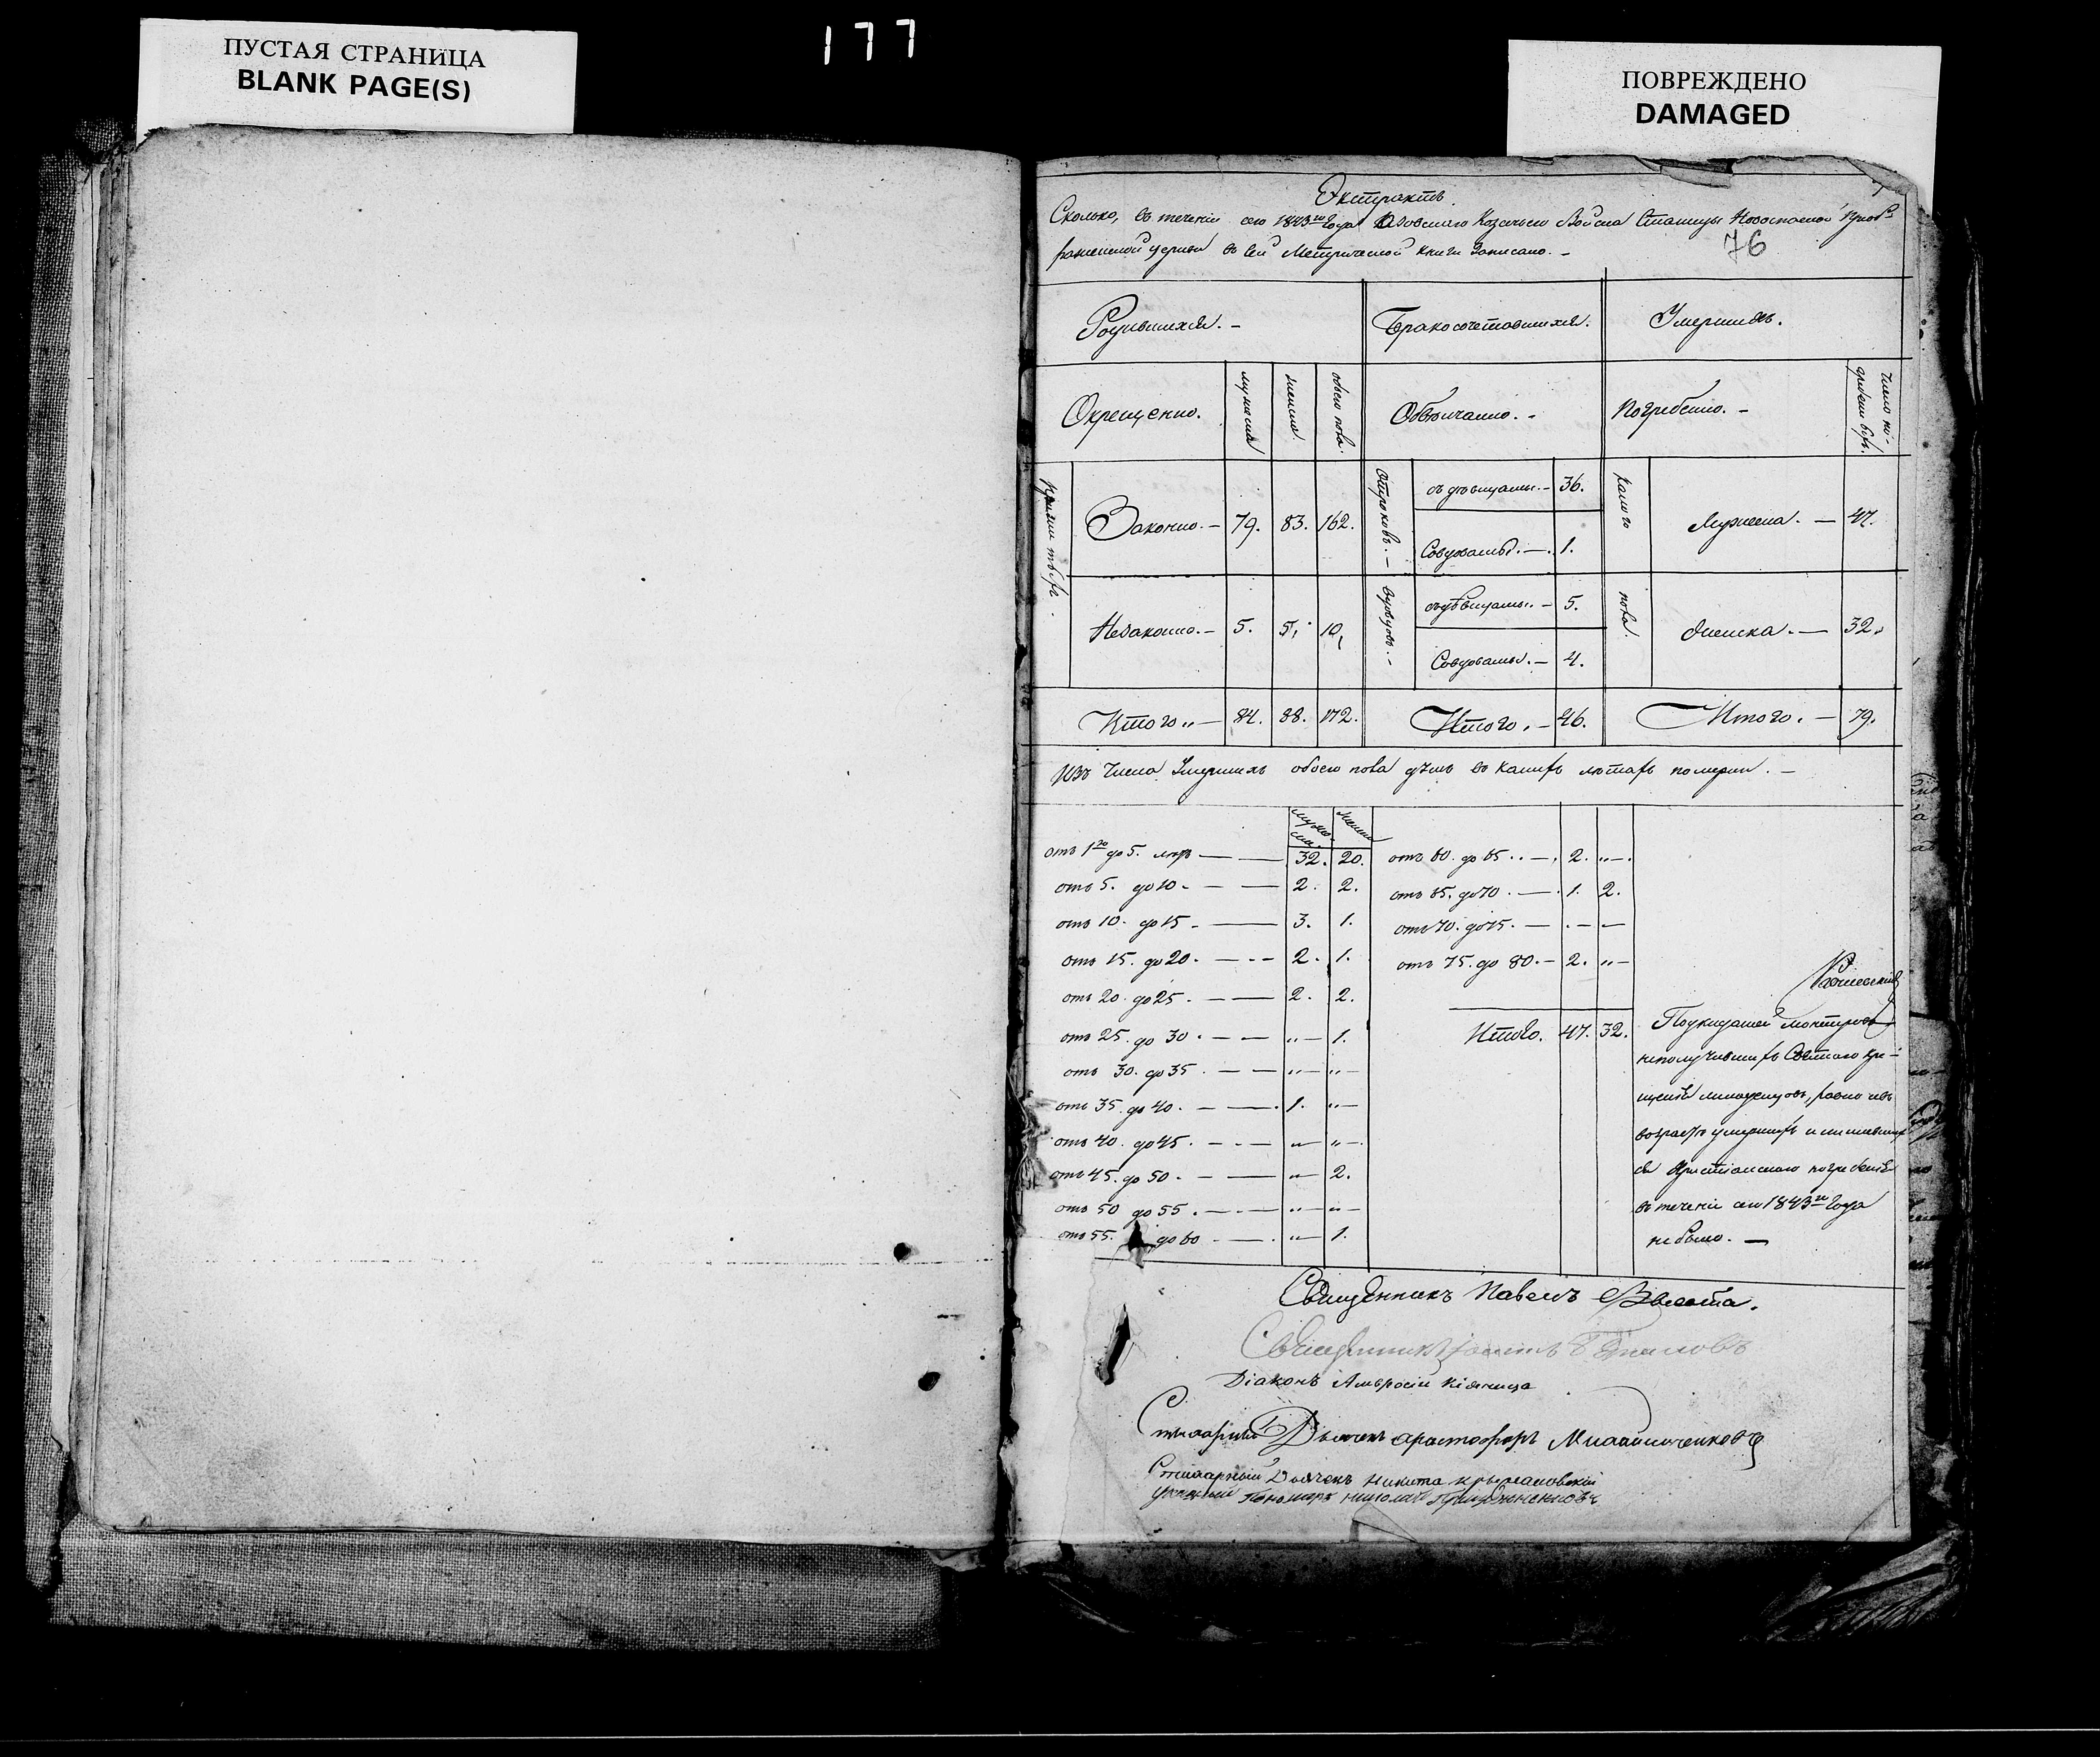 ПУСТАЯ СТРАНИЦА
BLANK PAGE(S)
177
ПОВРЕЖДЕНО
DAMAGED
Экстрактъ.
Сколько, въ теченіи сего 1843го Года Азовскаго Козачьего Войска Станицы Новоспаской Преоб-
раженской церкви въ сей Метрической книги Записано. –
76
Родившихся. – Бракосочетавшихся. Умершихъ.
Окрещено. мужеска женска обоего пола. Обвѣнчано. – Погребено. – Число
Законно. – 79. 83. 162. Отроковъ. – съ дѣвицамы. – 36. какого Мужеска. – 47.
Совдовамы. – 1.
Незаконно. – 5. 5, 10, вдовцовъ. – съ дѣвицамы. – 5. пола. Женска. – 32.
Совдовамы. – 4.
Итого „ – 84. 88. 172. Итого. – 46. Итого. – 79.
Изъ Числа Умершихъ обоего пола въ какихъ лѣтахъ померли. –
отъ 1го до 5. лѣтъ — 32. 20. отъ 60. до 65. – 2. „ –
отъ 5. до 10 – 2. 2. отъ 65. до 70. – 1. 2.
отъ 10. до 15 – 3. 1. отъ 70. до 75. – – –
отъ 15. до 20. – 2. 1. отъ 75. до 80. – 2. „ –
отъ 20. до 25. – 2. 2.
отъ 25. до 30. – „ – 1. Итого. 47. 32.
отъ 30. до 35. – „ – „ –
отъ 35. до 40. – 1. „ –
отъ 40. до 45. – „ – „ –
отъ 45. до 50. – „ – 2.
отъ 50 до 55. – „ – „ –
отъ 55. до 60 – „ – 1.
неполучившихъ Святаго кре-
щенія младенцовъ, равно
возрастъ умершихъ
ся Христіанскаго погребенія
въ теченіи сего 1843го Года
не было. —
Священникъ Павелъ
Священникъ
Діаконъ Амвросій Кіяница
Стихарный Дьячекъ
Стихарный Дьячекъ Никита Крыжановскій
Пономарь Николай